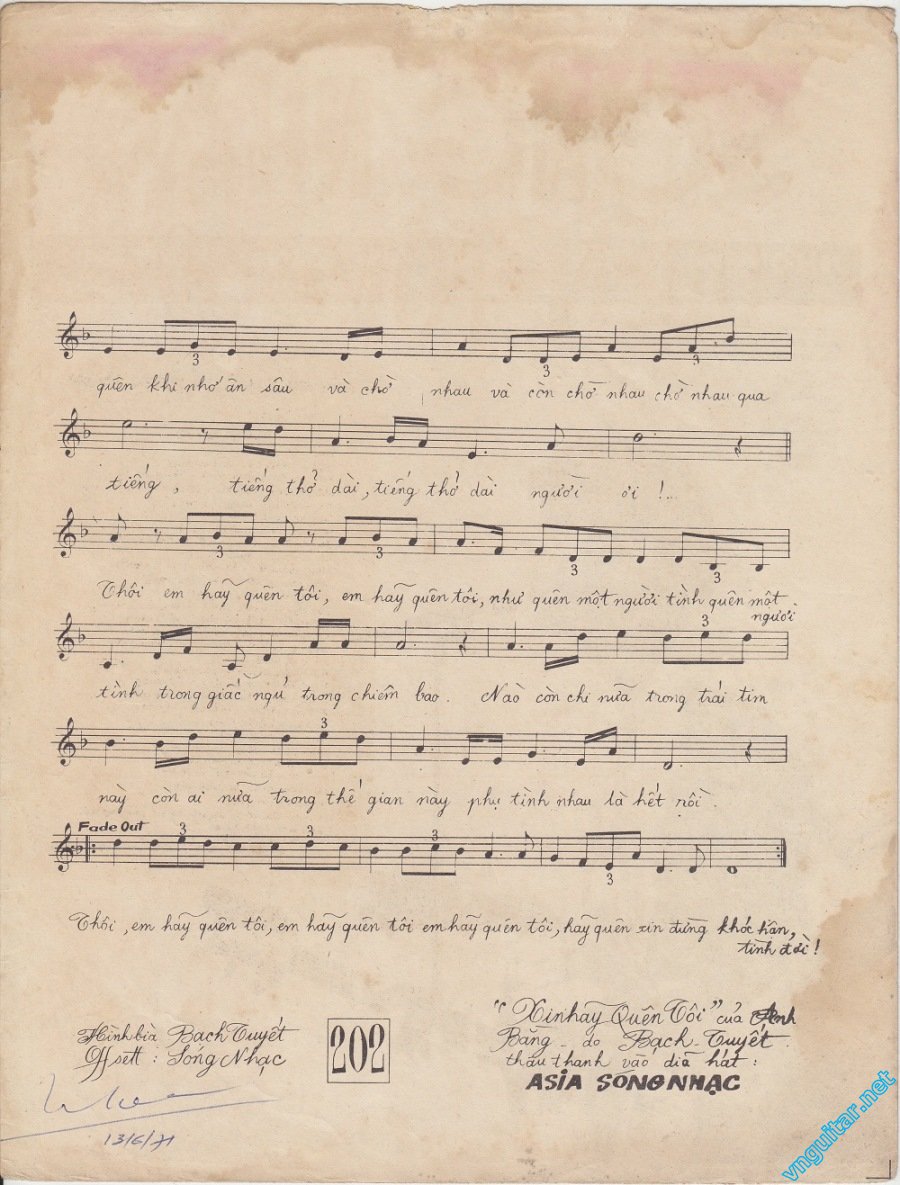 quên khi nhớ ân sâu và chờ nhau và còn chờ nhau chờ nhau qua
tiếng, tiếng thở dài, tiếng thở dài người ơi !..
Thôi em hãy quên tôi, em hãy quên tôi, như quên một người tình quên một
người
tình trong giấc ngủ trong chiêm bao. Nào còn chi nữa trong trái tim
này còn ai nữa trong thế gian này phụ tình nhau là hết rồi.
Fade Out
Thôi, em hãy quên tôi, em hãy quên tôi em hãy quên tôi, hãy quên xin đừng khóc hận,
tình đời !
Hình bìa Bạch Tuyết
Offsett : Sóng Nhạc
202
"Xin hãy Quên Tôi" của Anh
Bằng - do Bạch - Tuyết
thâu thanh vào dĩa hát :
ASIA SONG NHẠC
13/6/71
vnguitar.net